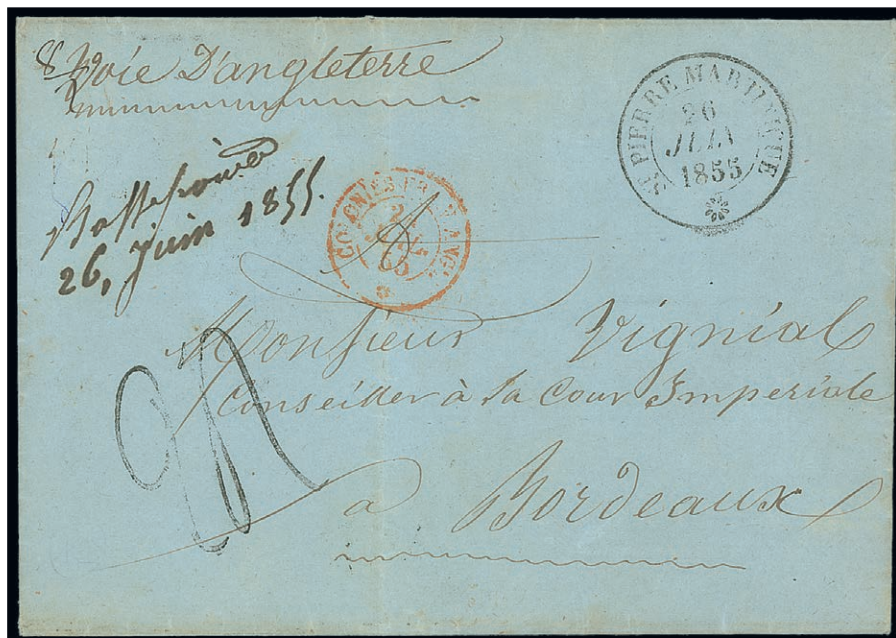 Voie D'angleterre
ST PIERRE MARTINIQUE
26
JUIN
1855
26, juin 1855.
COLONIES FRA
ANGL
A
Monsieur Vignial
Conseiller à la Cour Imperiale
à Bordeaux